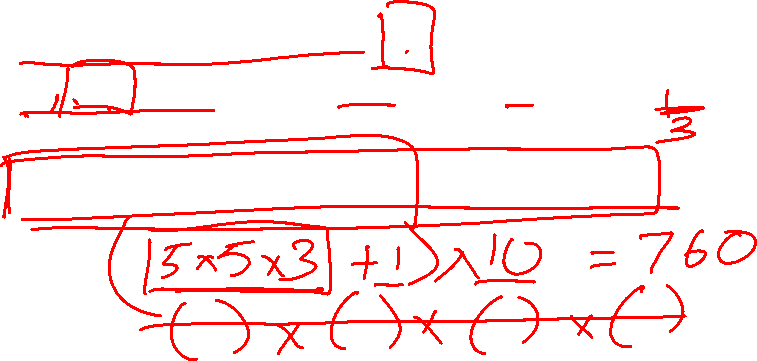 3
(5×5×3 +1)×10 = 760
( ) × ( ) × ( ) × ( )